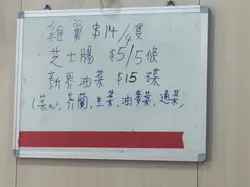 雞翼 $14/4隻
芝士腸 $5/5條
新界油菜 $15 碟
(菜心, 芥蘭, 生菜, 油麥菜, 通菜)